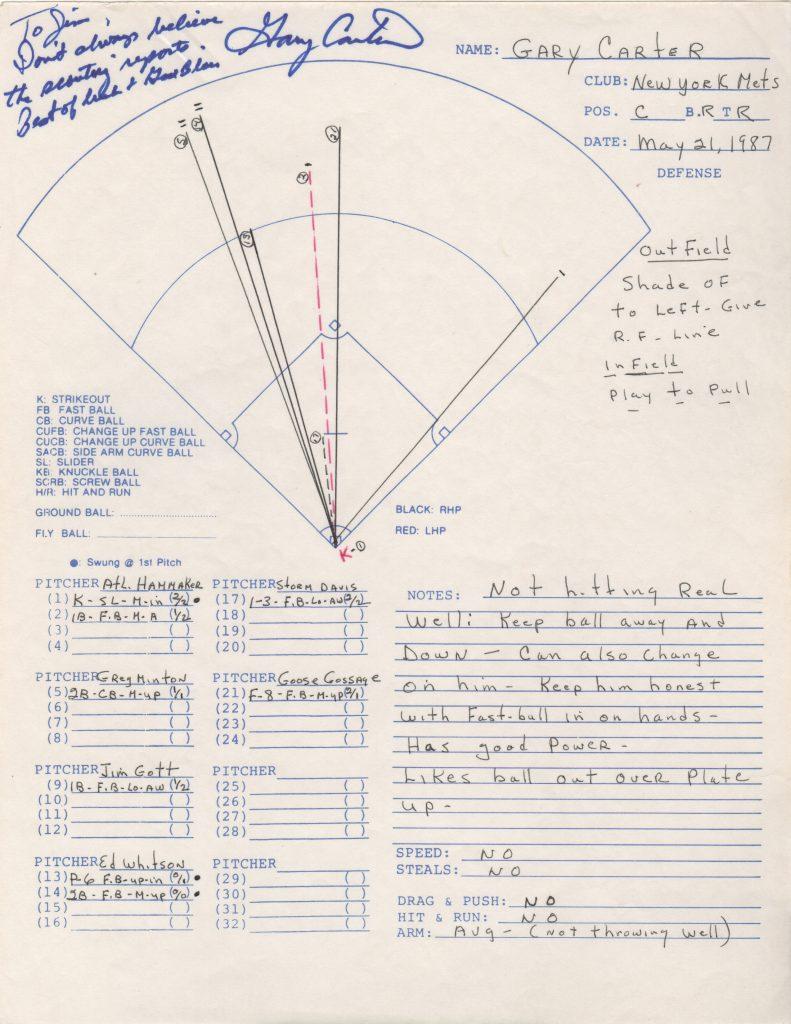 To Jim,
Don't always believe
the scouting reports.
Best of luck & God Bless
Gary Carter
NAME: GARY CARTER
CLUB: New York Mets
POS. C B.R T R
DATE: May 21, 1987
DEFENSE
OutField
Shade OF
to Left - Give
R.F - Line
InField
Play to Pull
5
14
21
2
13
9
1
K-1
K: STRIKEOUT
FB FAST BALL
CB: CURVE BALL
CUFB: CHANGE UP FAST BALL
CUCB: CHANGE UP CURVE BALL
SACB: SIDE ARM CURVE BALL
SL: SLIDER
KB: KNUCKLE BALL
SCRB: SCREW BALL
H/R: HIT AND RUN
GROUND BALL:
FLY BALL:
BLACK: RHP
RED: LHP
●: Swung @ 1st Pitch
PITCHER Atl. HAMMAKER
(1) K - SL - M - in (2/2) ●
(2) 1B - F.B - M - A (1/2)
(3) ( )
(4) ( )
PITCHER Greg Minton
(5) 2B - CB - M - up (1/1)
(6) ( )
(7) ( )
(8) ( )
PITCHER Jim Gott
(9) 1B - F.B - Lo - AW (1/2)
(10) ( )
(11) ( )
(12) ( )
PITCHER Ed Whitson
(13) F-6 F.B - up - in (0/1) ●
(14) 2B - F.B - M - up (0/0) ●
(15) ( )
(16) ( )
PITCHER Storm DAVIS
(17) 1-3 - F.B - Lo - AW (2/2)
(18) ( )
(19) ( )
(20) ( )
PITCHER Goose Gossage
(21) F-8 - F.B - M - up (2/1)
(22) ( )
(23) ( )
(24) ( )
PITCHER
(25) ( )
(26) ( )
(27) ( )
(28) ( )
PITCHER
(29) ( )
(30) ( )
(31) ( )
(32) ( )
NOTES: Not hitting Real
Well: Keep ball away And
Down - Can also change
on him - Keep him honest
with Fast-ball in on hands -
Has good Power -
Likes ball out over Plate
up -
SPEED: NO
STEALS: NO
DRAG & PUSH: NO
HIT & RUN: NO
ARM: Avg - (not throwing well)